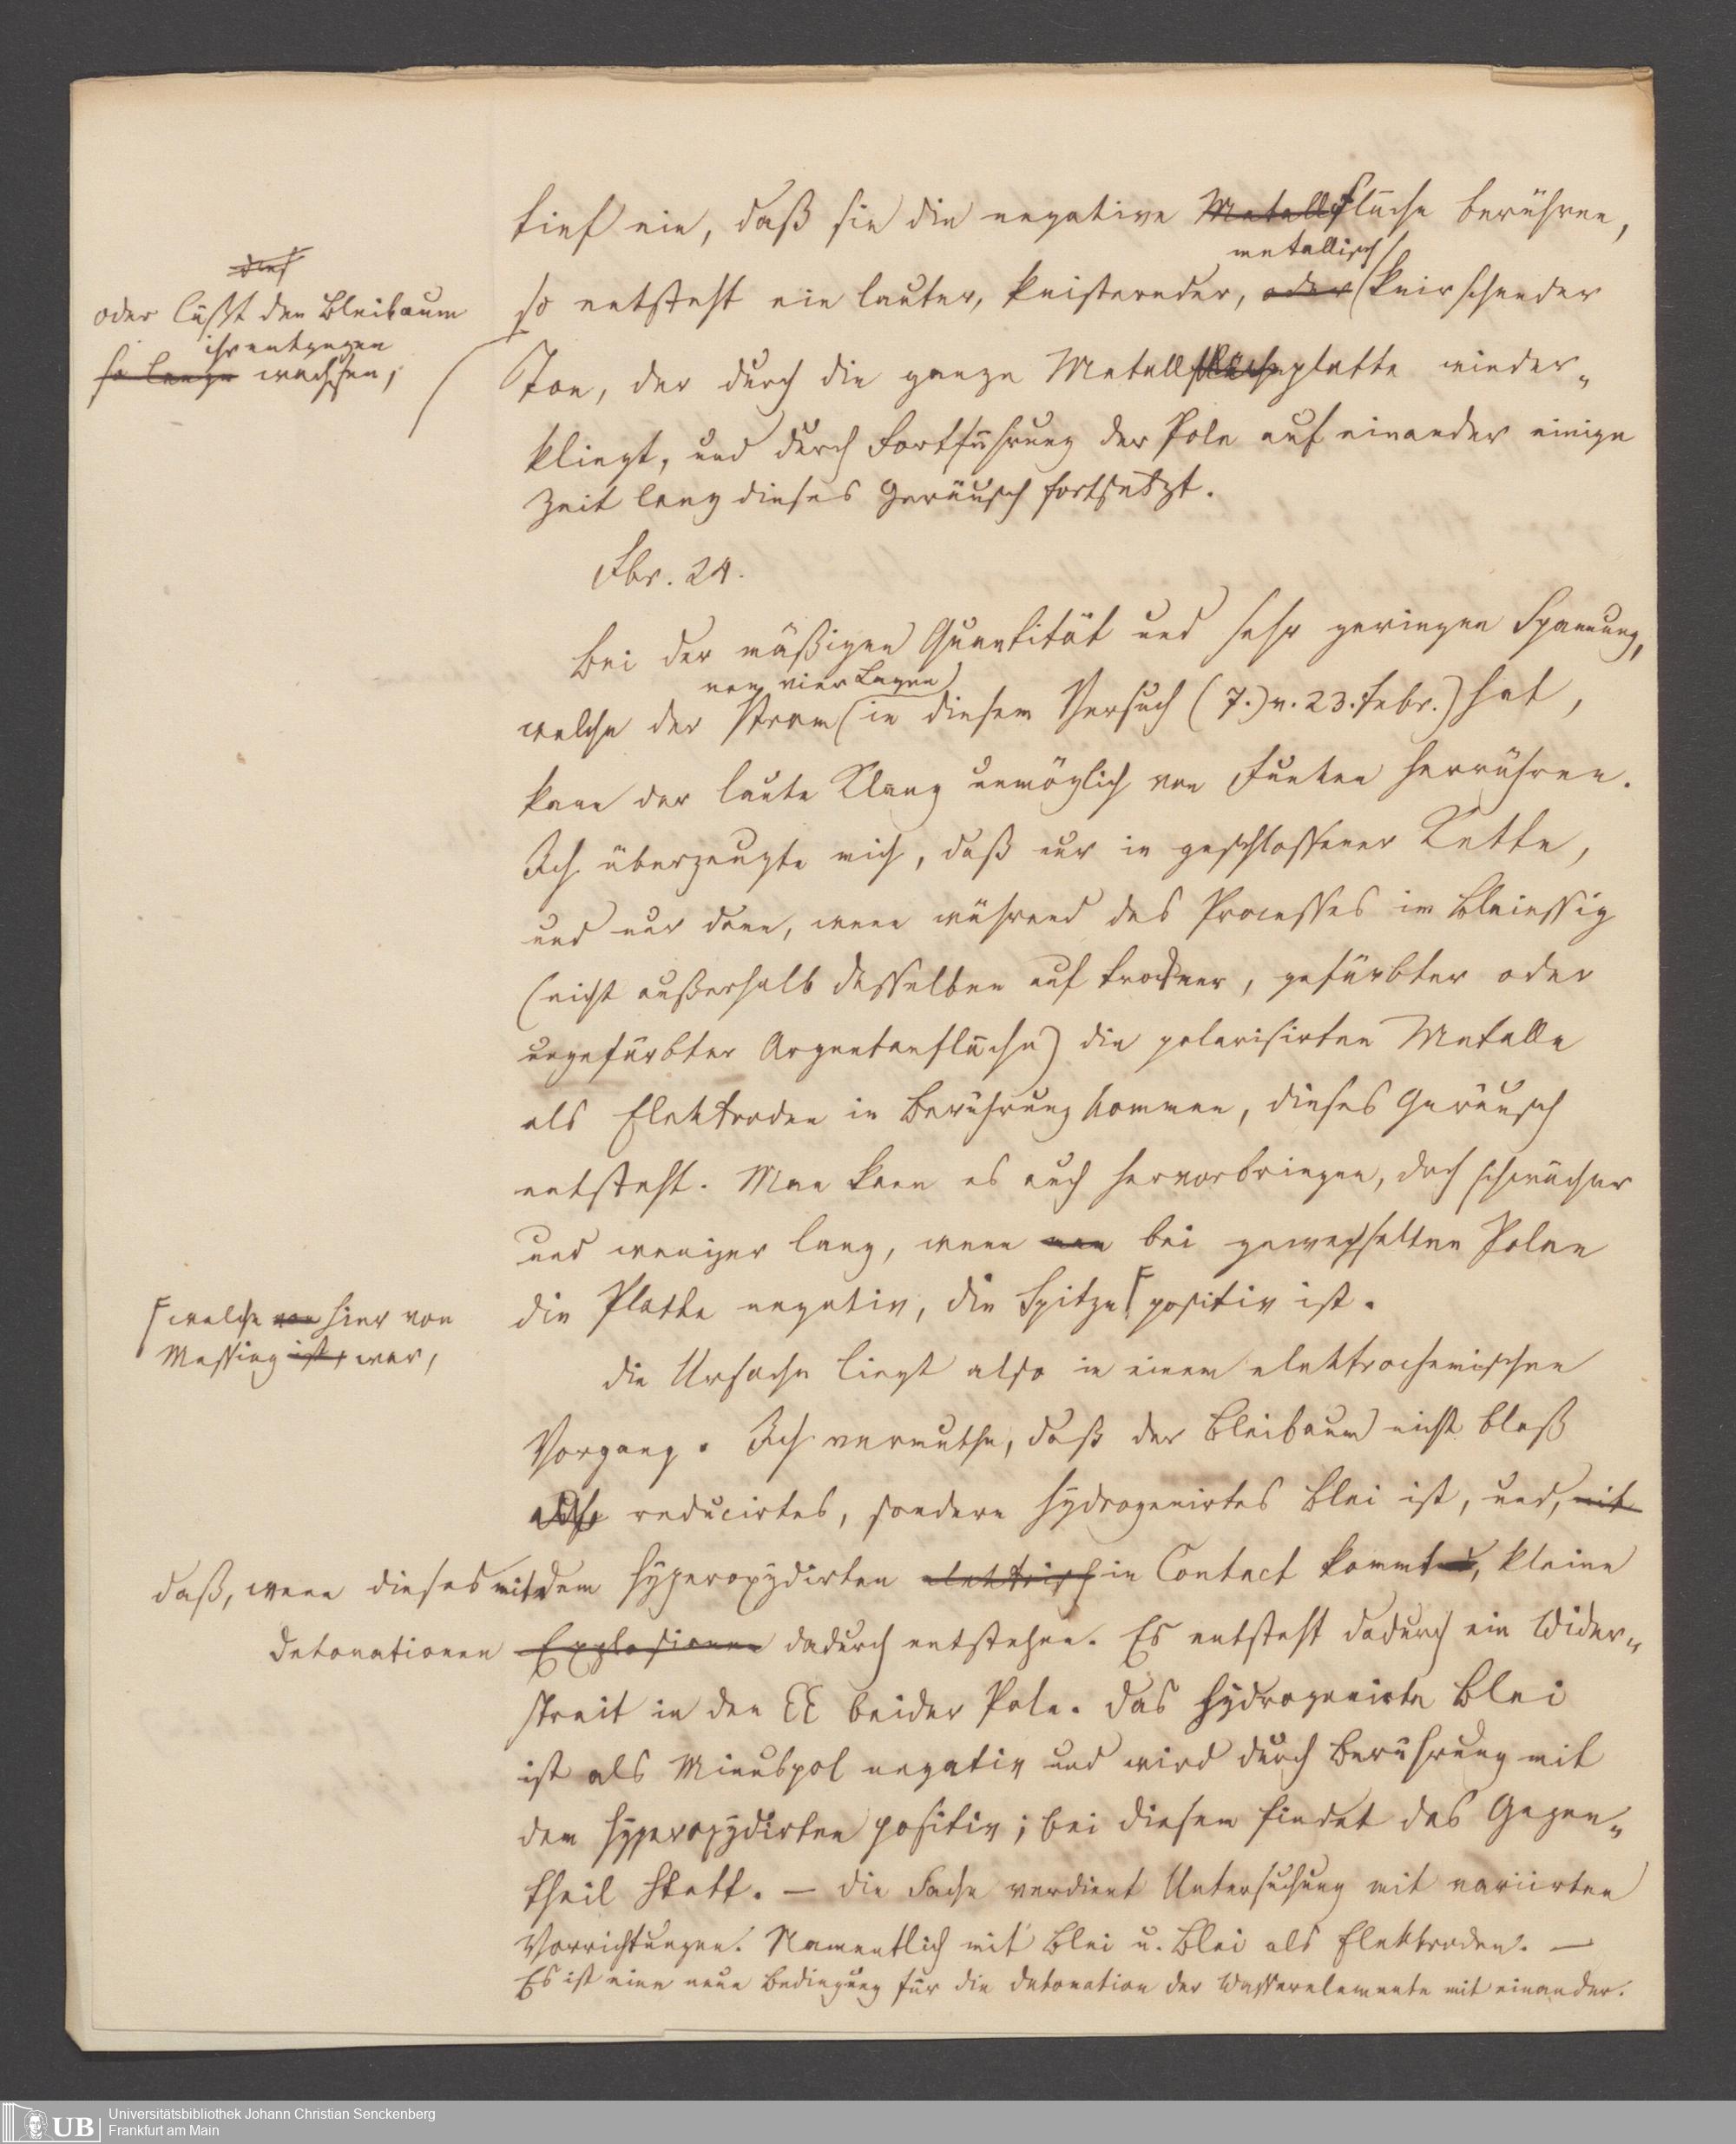 tief ein, daß sie die negative Metallfläche berühren,
metallisch
so entsteht ein lauter, knisternder, oder knirschender
Ton, der durch die ganze Metallplatte wieder-
klingt, und durch Fortführung der Pole auf einander einige
Zeit lang dieses Geräusch fortsetzt.
dies
oder läßt den Bleibaum
ihr entgegen
so lange wachsen,
Fbr. 24.
Bei der mäßigen Quantität und sehr geringen Spannung,
von vier Lagen
welche der Strom in diesem Versuch (7.) v. 23. Febr.) hat,
kann der laute Klang unmöglich von Funken herrühren.
Ich überzeugte mich, daß nur in geschlossener Kette,
und nur dann, wenn während des Processes im Bleiessig
(nicht außerhalb desselben auf trockner, gefärbter oder
ungefärbter Argentanfläche) die polarisirten Metalle
als Elektroden in Berührung kommen, dieses Geräusch
entsteht. Man kann es auch hervorbringen, doch schwächer
und weniger lang, wenn man bei gewechselten Polen
die Platte negativ, die Spitze positiv ist.
welche von hier von
Messing ist, war,
Die Ursache liegt also in einem elektrochemischen
Vorgang. Ich vermuthe, daß der Bleibaum nicht bloß
reducirtes, sondern hydrogenirtes Blei ist, und, mit
daß, wenn dieses mit dem hyperoxydirten elektrisch in Contact kommt, kleine
Detonationen Explosionen dadurch entstehen. Es entsteht dadurch ein Wider-
streit in den EE beider Pole. Das hydrogenirte Blei
ist als Minuspol negativ und wird durch Berührung mit
dem hyperoxydirten positiv; bei diesem findet das Gegen-
theil statt. — Die Sache verdient Untersuchung mit variirten
Vorrichtungen. Namentlich mit Blei u. Blei als Elektroden. —
Es ist eine neue Bedingung für die Detonation der Wasserelemente mit einander.
UB
Universitätsbibliothek Johann Christian Senckenberg
Frankfurt am Main